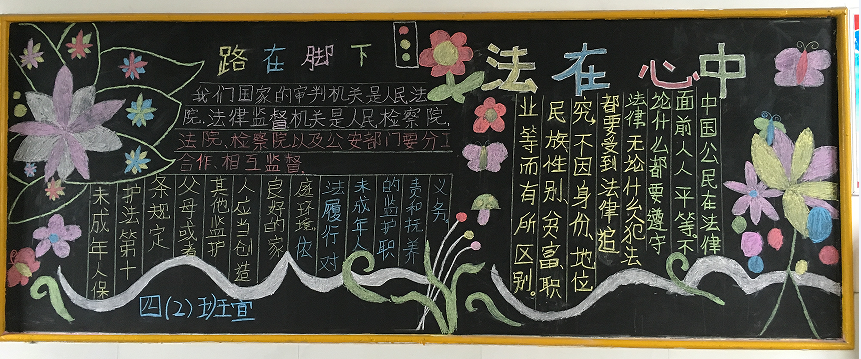 路在脚下
我们国家的审判机关是人民法
院,法律监督机关是人民检察院,
法院、检察院以及公安部门要分工
合作,相互监督.
未成年人保
护法第十
条规定
父母或者
其他监护
人应当创造
良好的家
庭环境依
法履行对
未成年人
的监护职
责和抚养
义务.
四(2)班宣
法在心中
中国公民在法律
面前人人平等。不
论什么都要遵守
法律,无论什么犯法
都要受到法律追
究,不因身份、地位
民族性别、贫富、职
业等而有所区别。